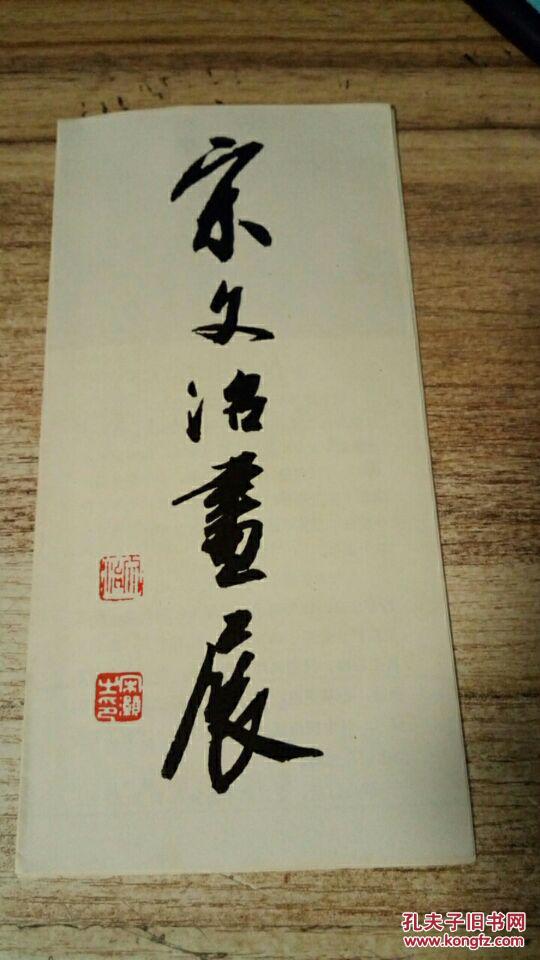 宋文治畫展
孔夫子旧书网
www.kongfz.com